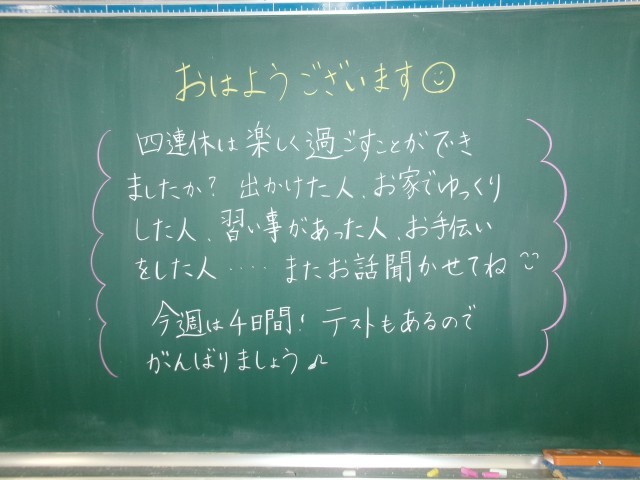 おはようございます☺
四連休は楽しく過ごすことができ
ましたか? 出かけた人、お家でゆっくり
した人、習い事があった人、お手伝い
をした人‥‥‥またお話聞かせてね☺
今週は4日間! テストもあるので
がんばりましょう♪